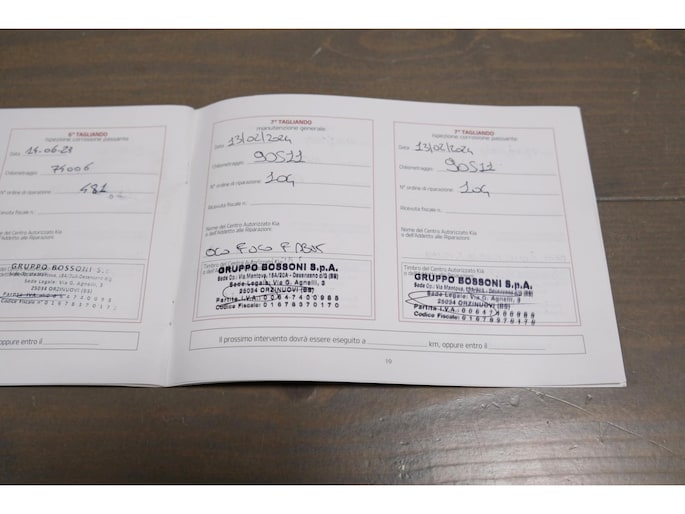 6° TAGLIANDO
Ispezione corrosione passante
Data: 14.06.23
Chilometraggio: 74006
N° ordine di riparazione: 481
Ricevuta fiscale n.:
Nome del Centro Autorizzato Kia
o dell'Addetto alle Riparazioni:
GRUPPO BOSSONI S.
Sede Legale: Via G. Agnelli, 3
25034 ORZINUOVI (BS)
oppure entro il
7° TAGLIANDO
manutenzione generale
Data: 13/02/2024
Chilometraggio: 90511
N° ordine di riparazione: 104
Ricevuta fiscale n.:
Nome del Centro Autorizzato Kia
o dell'Addetto alle Riparazioni:
Timbro del Centro Autorizzato Kia
GRUPPO BOSSONI S.p.A.
Sede Op.: Via Mantova, - Desenzano d/G (BS)
Sede Legale: Via G. Agnelli, 3
25034 ORZINUOVI (BS)
Partita I.V.A.: 00647400985
Codice Fiscale: 01678570170
7° TAGLIANDO
Ispezione corrosione passante
Data: 13/02/2024
Chilometraggio: 90511
N° ordine di riparazione: 104
Ricevuta fiscale n.:
Nome del Centro Autorizzato Kia
o dell'Addetto alle Riparazioni:
Timbro del Centro Autorizzato Kia
GRUPPO BOSSONI S.p.A.
Sede Op.: Via Mantova, - Desenzano d/G (BS)
Sede Legale: Via G. Agnelli, 3
25034 ORZINUOVI (BS)
Partita I.V.A.: 00647400985
Codice Fiscale: 01678570170
Il prossimo intervento dovrà essere eseguito a km, oppure entro il
19